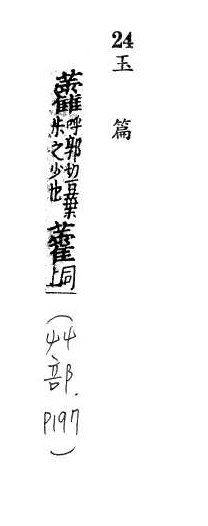 24 玉篇
𧆑 呼郭切豆葉
尗之少也 藿 同上
(艸部. P197)